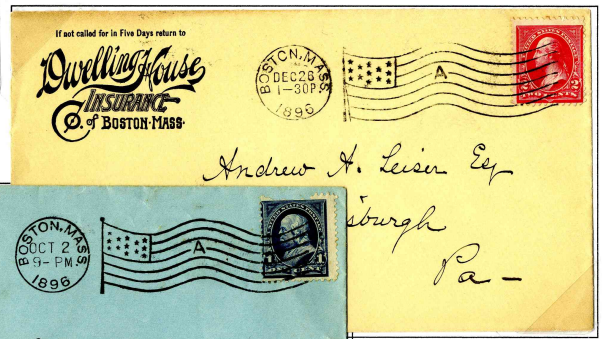 If not called for in Five Days return to
Dwelling House
INSURANCE
Co. of BOSTON·MASS.
BOSTON, MASS.
DEC 26
1-30P
1896
A
UNITED STATES POSTAGE
2 2
TWO CENTS
Andrew A. Leiser Esq
sburgh
Pa -
BOSTON, MASS.
OCT 2
9-PM
1896
A
1 1